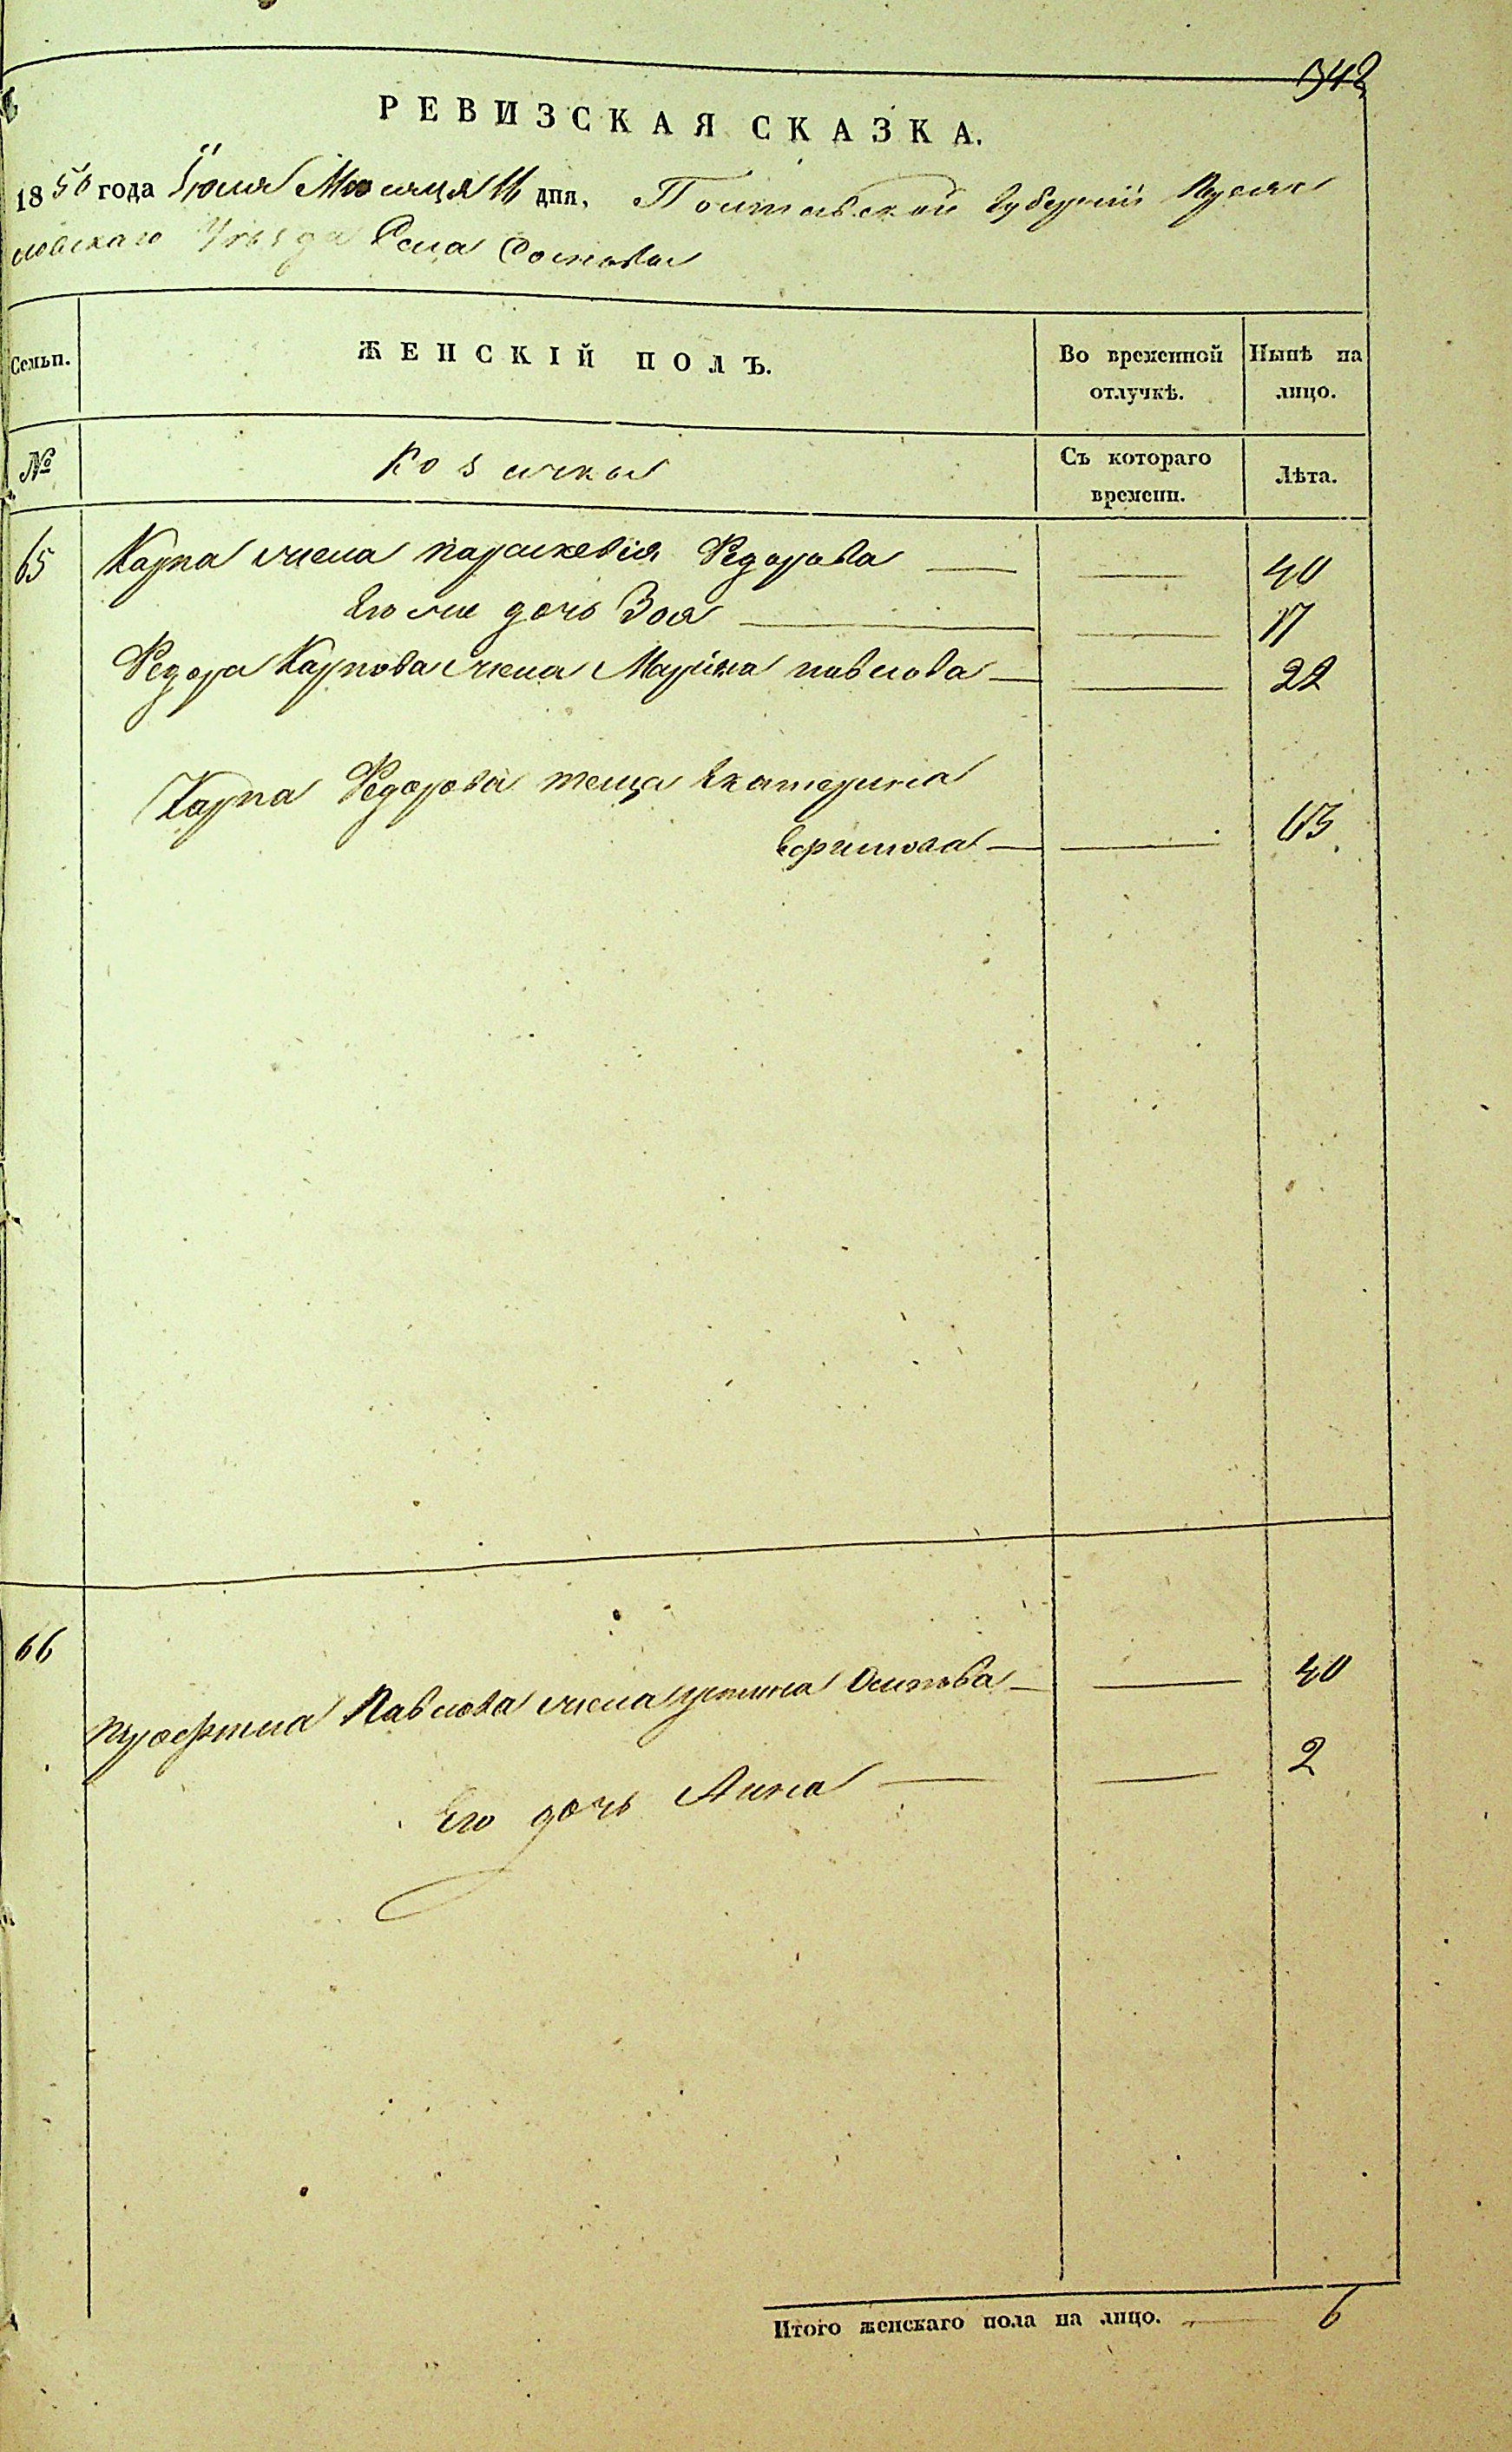 342
РЕВИЗСКАЯ СКАЗКА.
1850 года Іюля Месяця 11 дня, Полтавской губерніи
Уѣзда Села
Семьи. ЖЕНСКІЙ ПОЛЪ. Во временной отлучкѣ. Нынѣ на лицо.
№ Козачки Съ котораго времени. Лѣта.
65 Карпа жена параскевія Федорова — — 40
Его же дочь Зоя — — 17
Федора Карпова жена Марина павлова — — 22
Карпа Федорова теща Екатерина
Ефимова — — 63
66 Павлова жена устина Осипова — — 40
Его дочь Анна — — 2
Итого женскаго пола на лицо. — 6